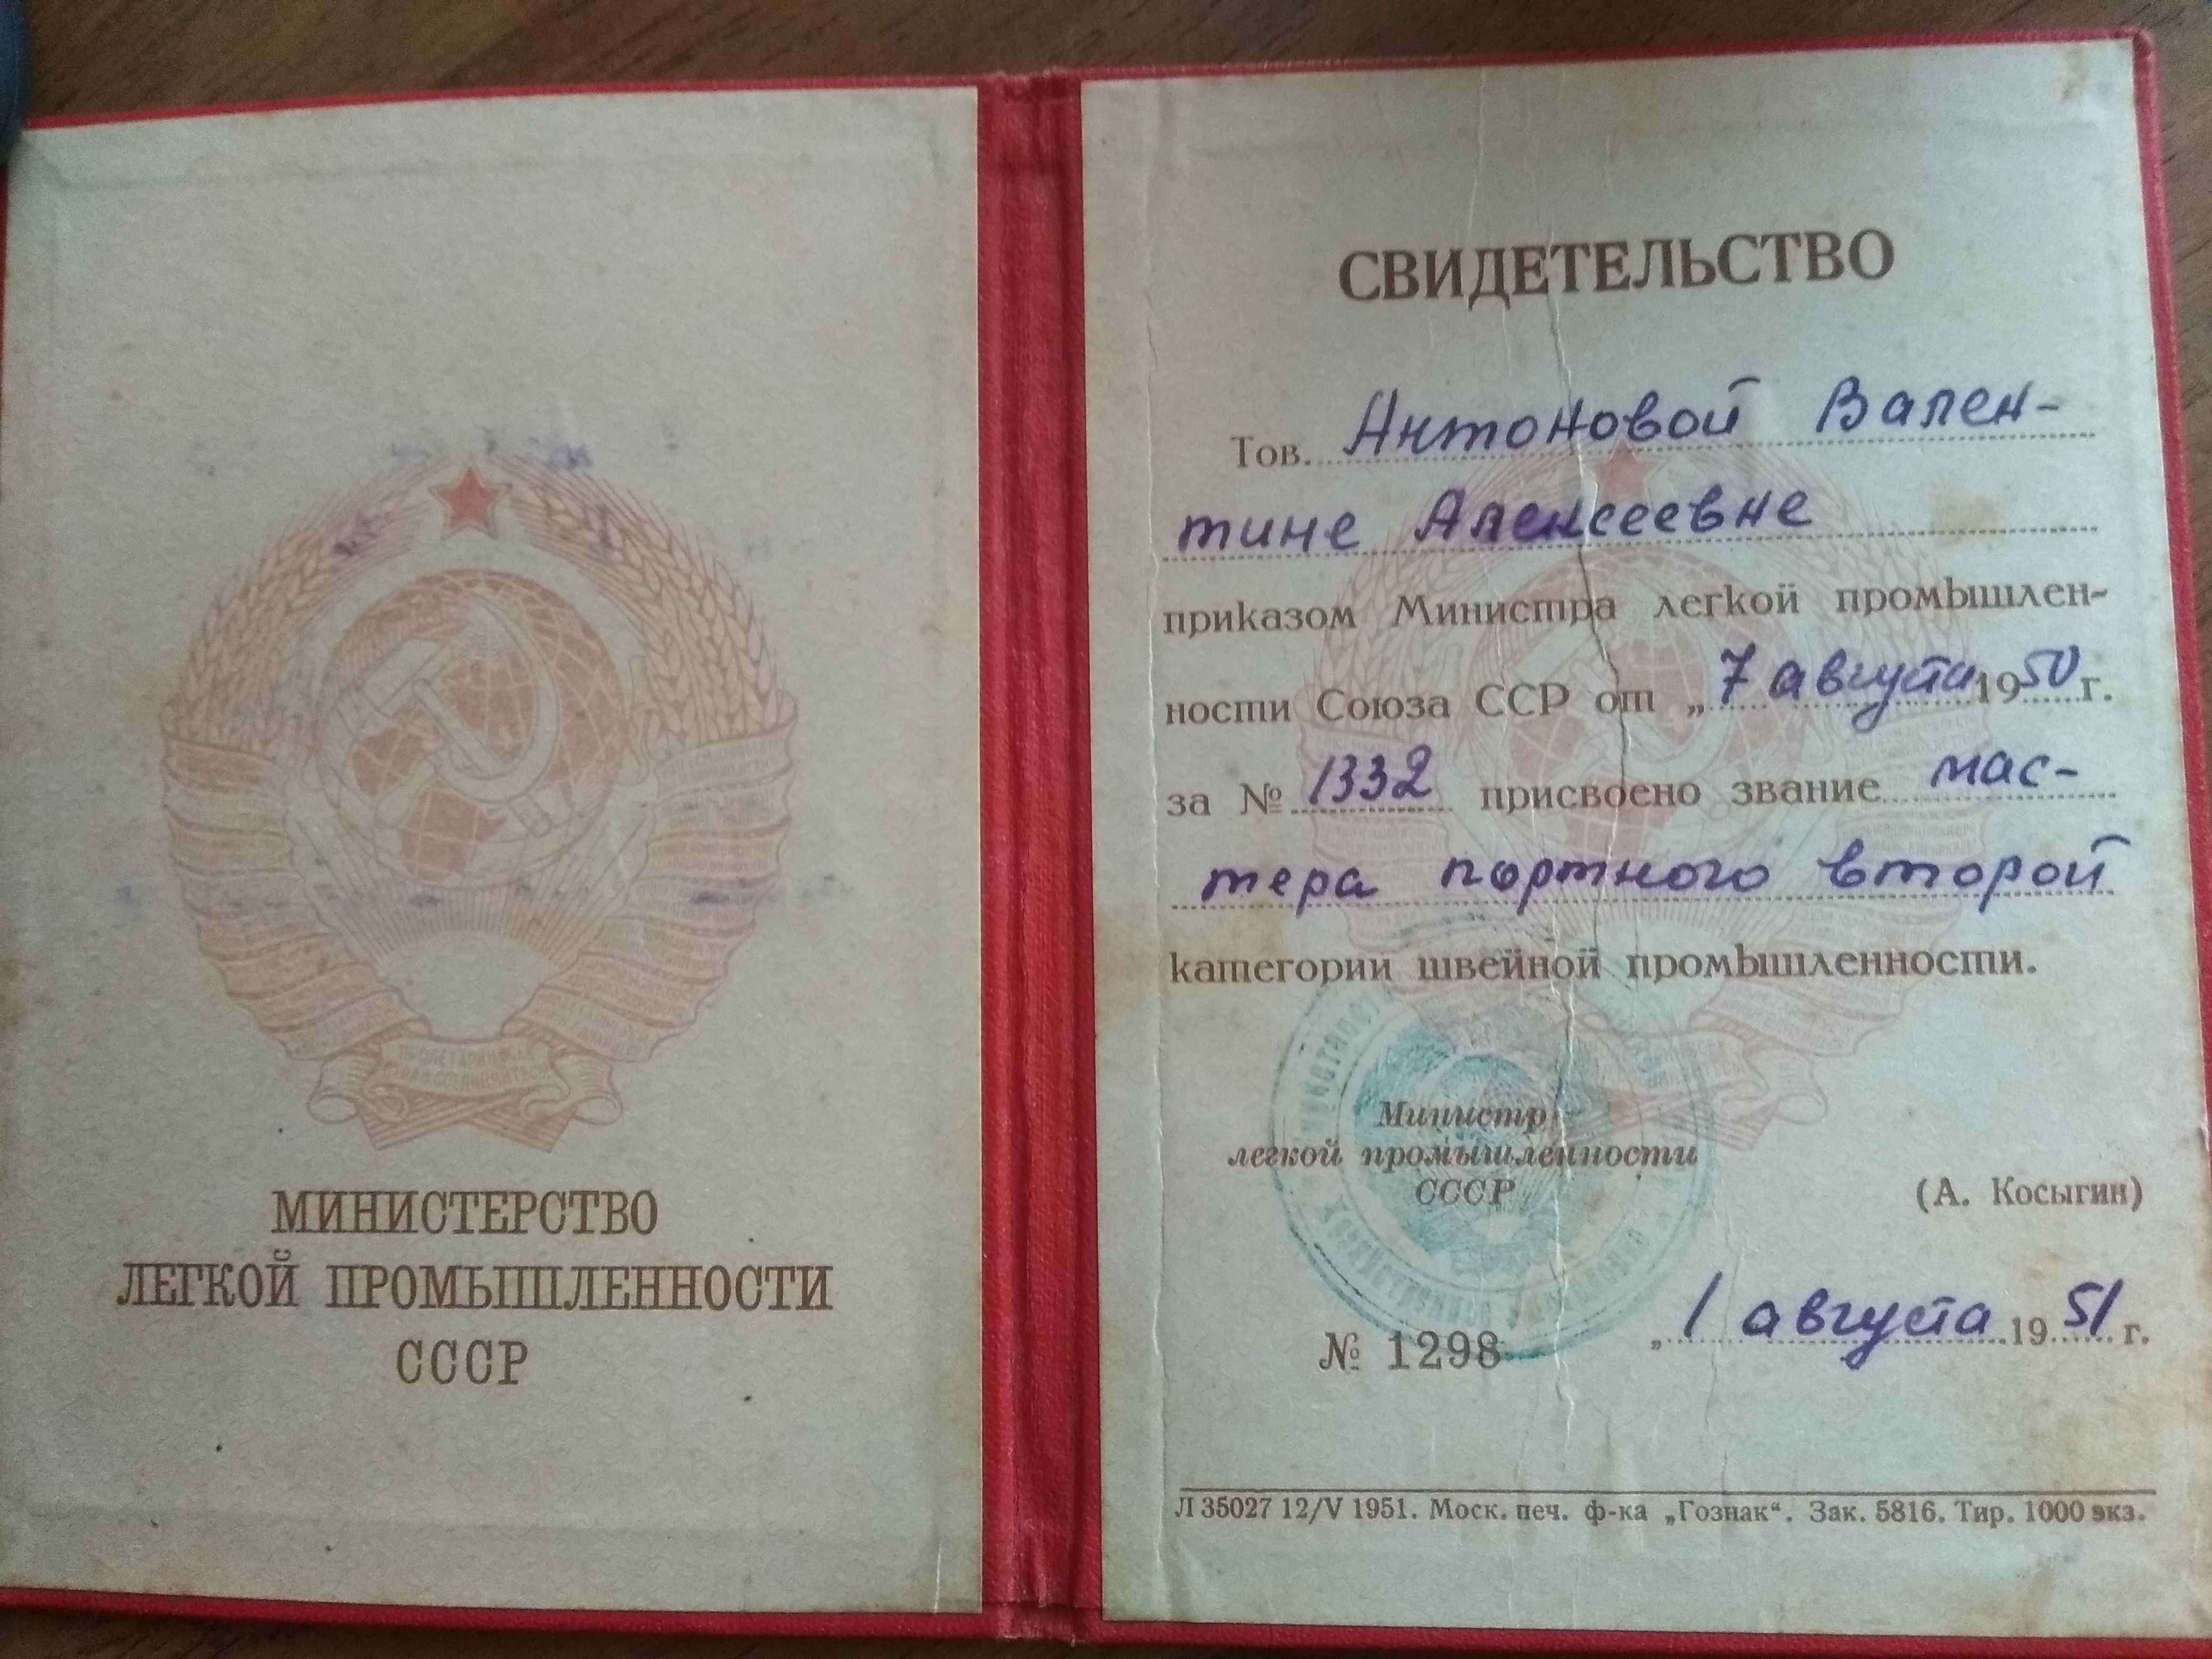 МИНИСТЕРСТВО
ЛЕГКОЙ ПРОМЫШЛЕННОСТИ
СССР
СВИДЕТЕЛЬСТВО
Тов. Антоновой Вален-
тине Алексеевне
приказом Министра легкой промышлен-
ности Союза ССР от „7 августа 1950 г.
за № 1332 присвоено звание мас-
тера портного второй
категории швейной промышленности.
Министр
легкой промышленности
СССР
(А. Косыгин)
№ 1298
„1 августа 1951 г.
Л 35027 12/V 1951. Моск. печ. ф-ка „Гознак“. Зак. 5816. Тир. 1000 экз.